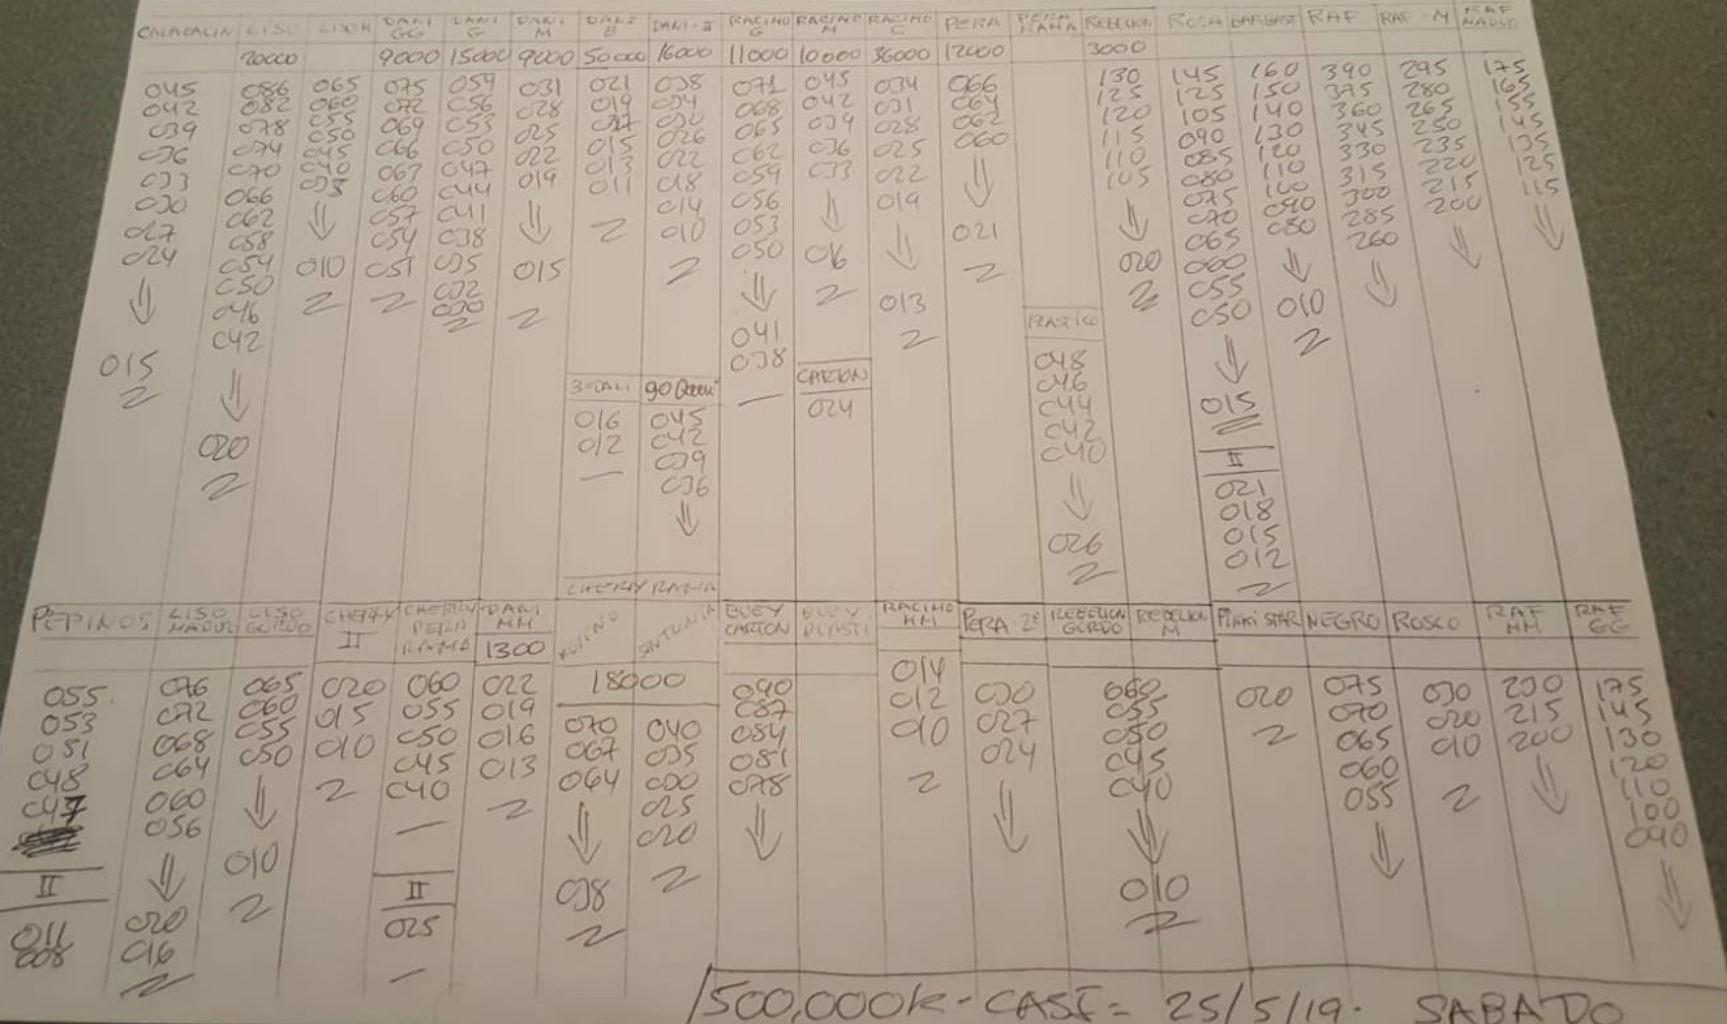 CALABACIN LISO LISO M DANI GG DANI G DANI M DANI B DANI-II RACIMO G RACIMO M RACIMO C PERA PERA RAMA REBELION ROSA BARBAST RAF RAF-M RAF MADURO
20000 9000 15000 9000 50000 16000 11000 10000 36000 12000 3000
045 086 065 075 059 031 021 038 071 045 034 066 130 145 160 390 295 175
042 082 060 072 056 028 019 034 068 042 031 064 125 125 150 375 280 165
039 078 055 069 053 025 017 030 065 039 028 062 120 105 140 360 265 155
036 074 050 066 050 022 015 026 062 036 025 060 115 090 130 345 250 145
033 070 045 063 047 019 013 022 059 033 022 110 085 120 330 235 135
030 066 040 060 044 011 018 056 019 105 080 110 315 220 125
027 062 035 057 041 014 053 075 100 300 215 115
024 058 054 038 010 050 021 070 090 285 200
054 010 051 035 015 016 020 065 080 260
050 032 013 060
046 030 055
042 041 050 010
015 038
020
3-DALI 90 CARTON PLASTICO
016 045 024 048 015
012 042 046 II
039 044 021
036 042 018
040 015
026 012
CHERRY RAMA
PEPINOS LISO MADUR LISO GORDO CHERRY II CHERRY PERA RAMA DANI MM KUMINO SINTONIA BUEY CARTON BUEY PLASTI RACIMO MM PERA-2ª REBELION GORDO REBELION M PINKI STAR NEGRO ROSCO RAF MM RAF GG
1300 18000
055 076 065 020 060 022 070 040 090 014 030 060 020 075 030 230 175
053 072 060 015 055 019 067 035 087 012 027 055 070 020 215 145
051 068 055 010 050 016 064 030 084 010 024 050 065 010 200 130
048 064 050 045 013 025 081 045 060 120
047 060 040 020 078 040 055 110
056 100
010 090
II II 038 010
011 020 025
008 016
1500,000k- CASI= 25/5/19. SABADO